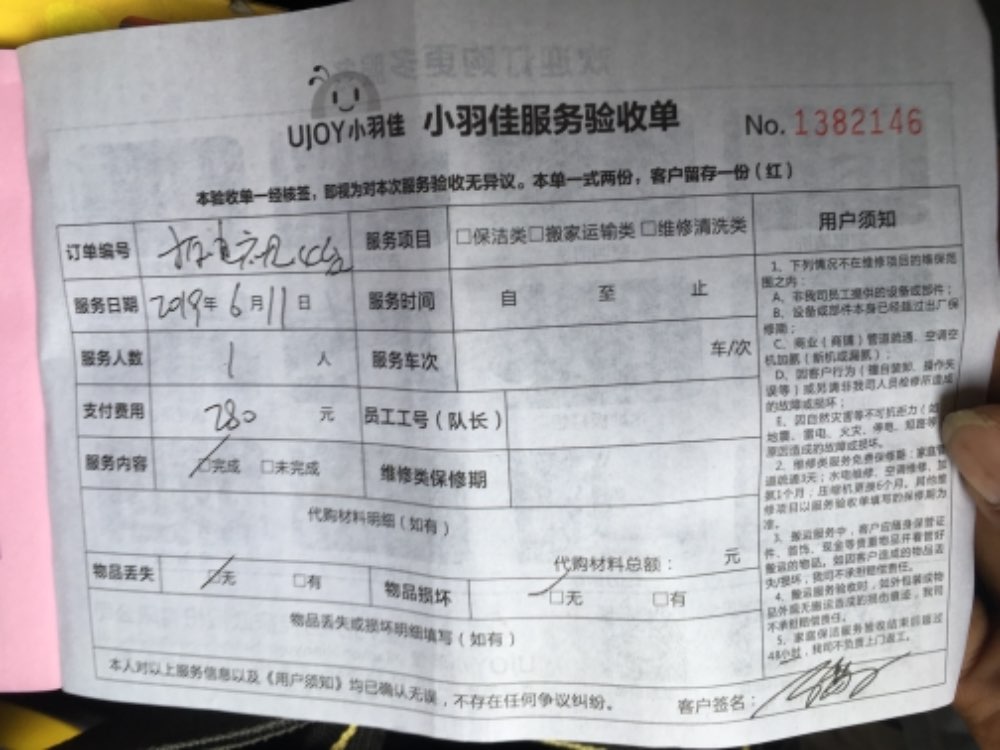 UJOY小羽佳 小羽佳服务验收单 No. 1382146
本验收单一经核签，即视为对本次服务验收无异议。本单一式两份，客户留存一份（红）
订单编号 服务项目 □保洁类□搬家运输类□维修清洗类
服务日期 2019年6月11日 服务时间 自 至 止
服务人数 1 人 服务车次 车/次
支付费用 280 元 员工工号（队长）
服务内容 □完成 □未完成 维修类保修期
代购材料明细（如有）
代购材料总额： 元
物品丢失 □无 □有 物品损坏 □无 □有
物品丢失或损坏明细填写（如有）
本人对以上服务信息以及《用户须知》均已确认无误，不存在任何争议纠纷。 客户签名：
用户须知
1、下列情况不在维修项目的维保范
围之内：
A、非我司员工提供的设备或部件；
B、设备或部件本身已经超过出厂保
修期；
C、商业（商铺）管道疏通、空调空
机加氟（新机或漏氟）；
D、因客户行为（擅自装卸、操作失
误等）或另请非我司人员检修所造成
的故障或损坏；
E、因自然灾害等不可抗拒力（如
地震、雷电、火灾、停电、短路等
原因造成的故障或损坏。
2、维修类服务免费保修期：家庭管
道疏通3天；水电维修、空调维修、加
氟1个月；压缩机更换6个月。其他维
修项目以服务验收单填写的保修期为
准。
3、搬运服务中，客户应随身保管证
件、首饰、现金等贵重物品并看管好
搬运的物品。如因客户造成的物品丢
失/损坏，我司不承担赔偿责任。
4、搬运服务验收时，如外包装或物
品外观无搬运造成的损伤痕迹，我司
不承担赔偿责任。
5、家庭保洁服务验收结束后超过
48小时，我司不负责上门返工。